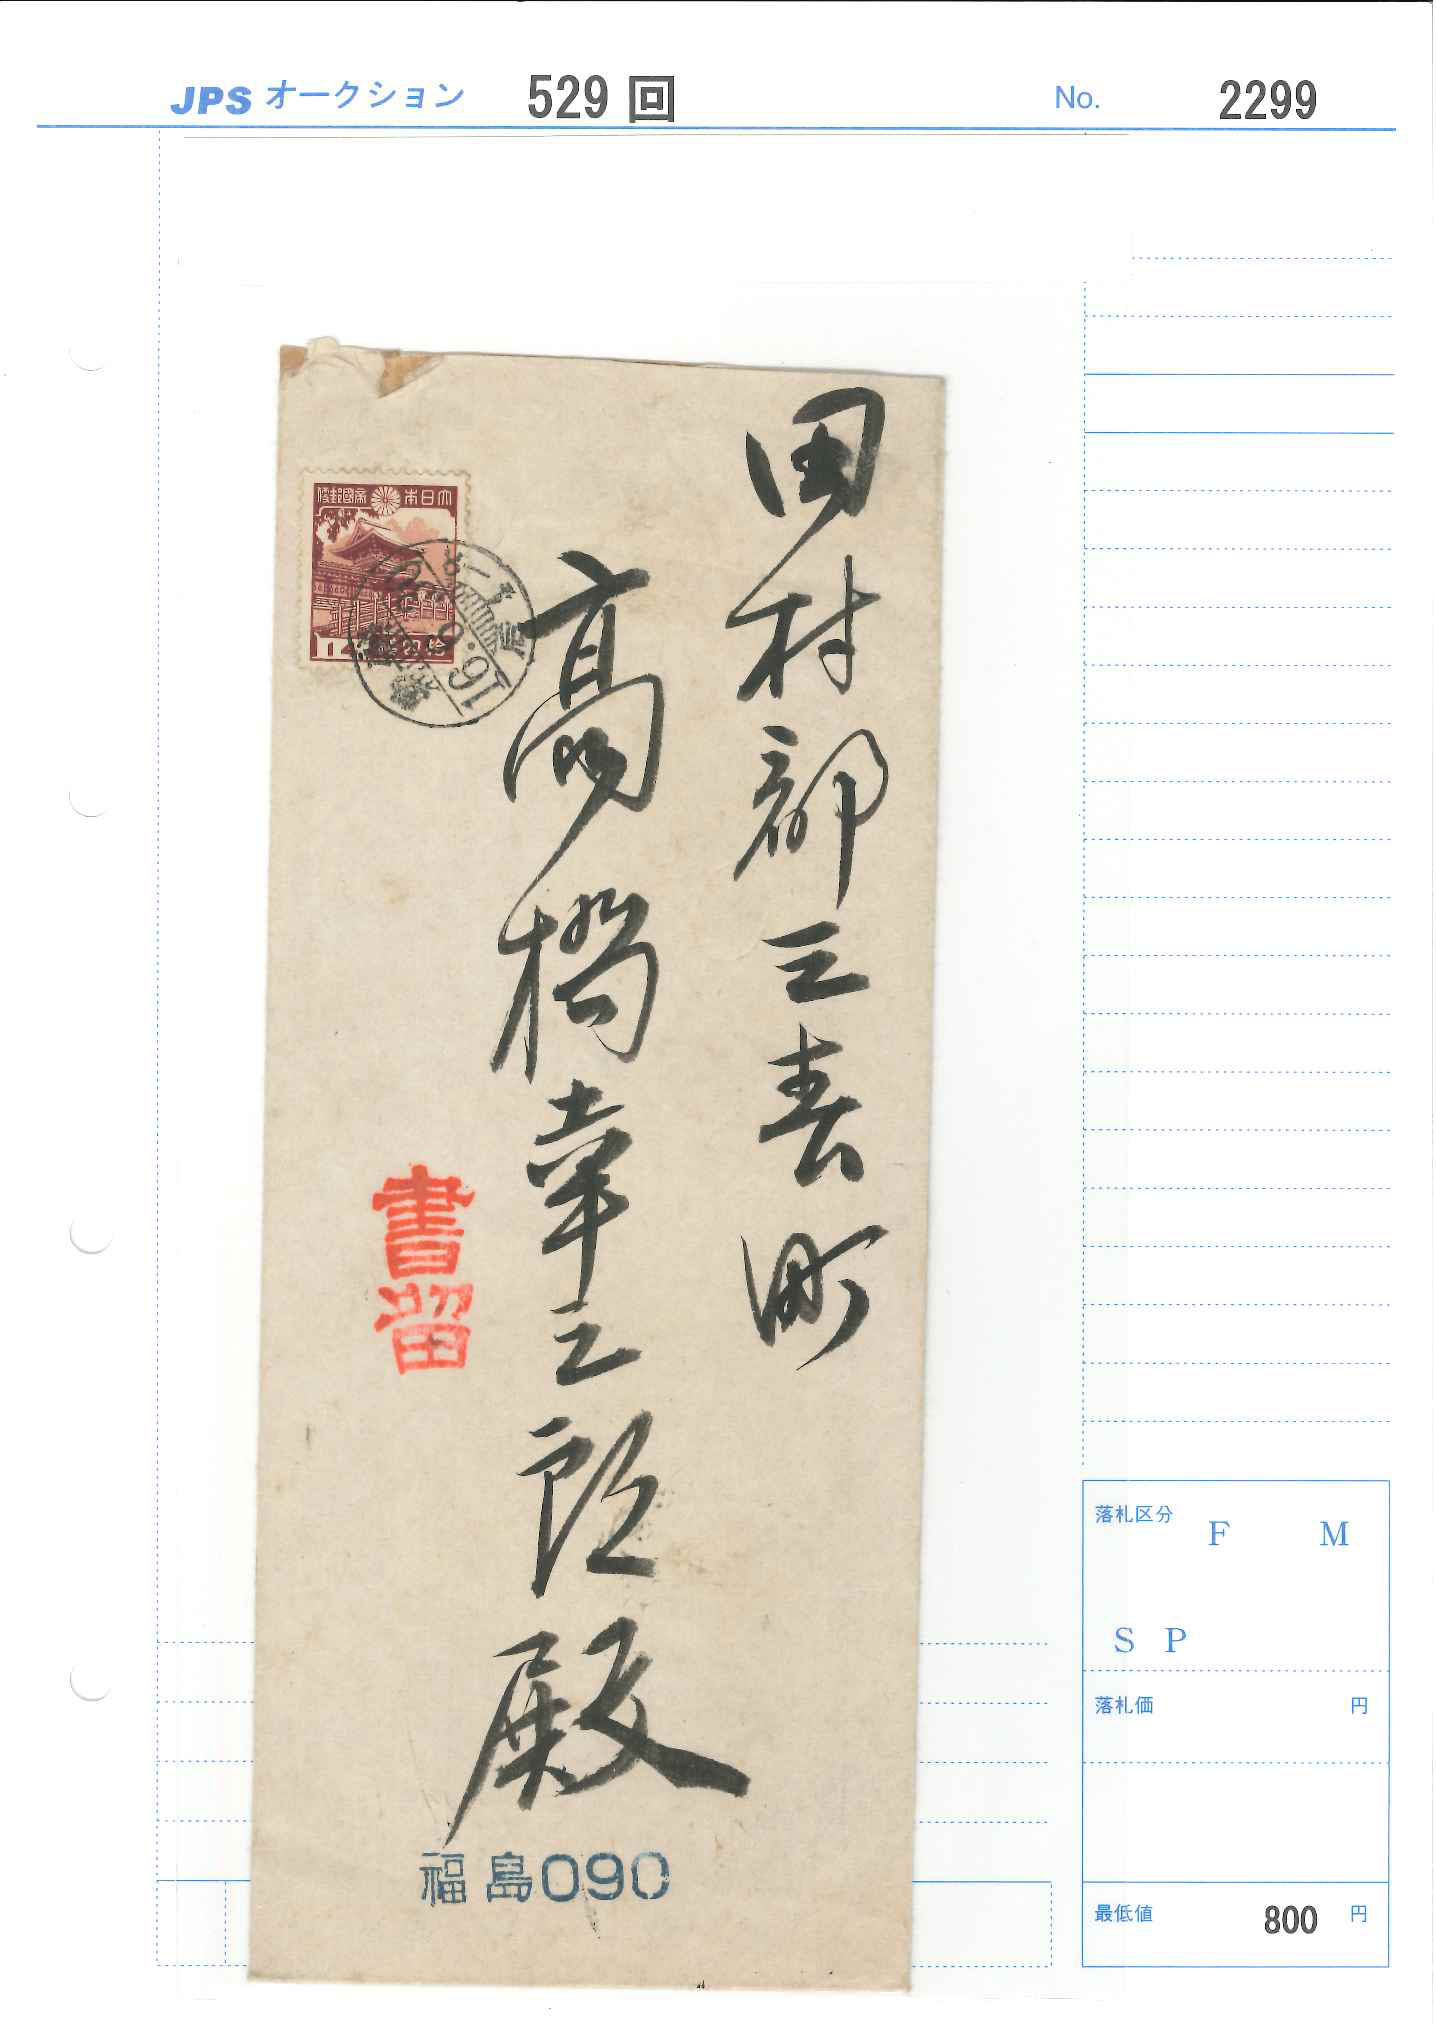 JPSオークション 529回 No. 2299
田村郡三春町
高橋幸三郎殿
大日本帝國郵便
書留
福島090
落札区分 F M
S P
落札価 円
最低値 800 円